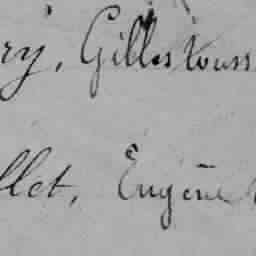 ry, Gilles Touss
llet, Eugène